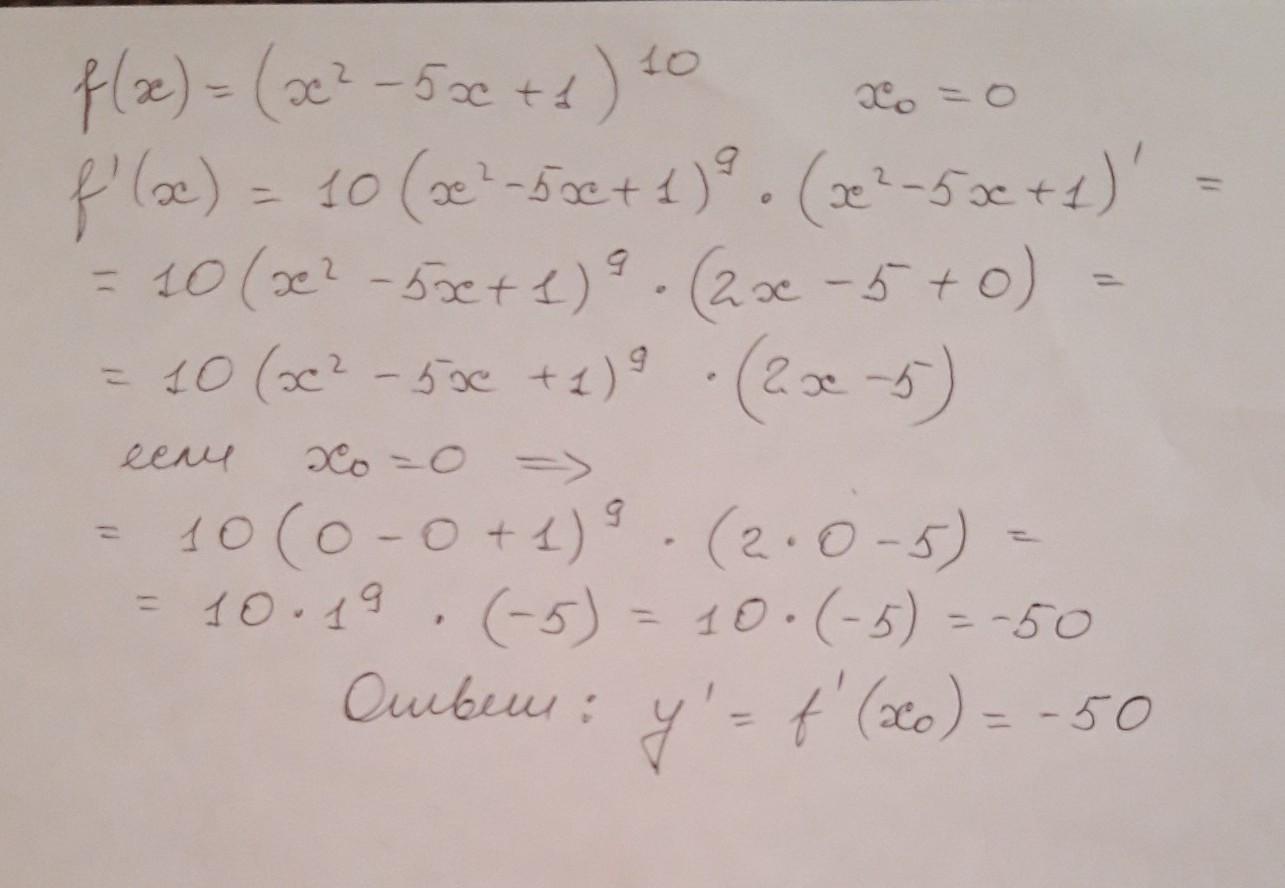 f(x) = (x² - 5x + 1)¹⁰ x₀ = 0
f'(x) = 10(x² - 5x + 1)⁹ · (x² - 5x + 1)' =
= 10(x² - 5x + 1)⁹ · (2x - 5 + 0) =
= 10(x² - 5x + 1)⁹ · (2x - 5)
если x₀ = 0 =>
= 10(0 - 0 + 1)⁹ · (2 · 0 - 5) =
= 10 · 1⁹ · (-5) = 10 · (-5) = -50
Ответ: y' = f'(x₀) = -50